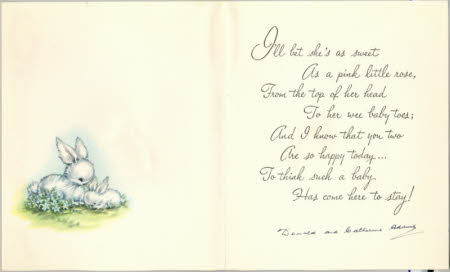 I'll bet she's as sweet
As a pink little rose,
From the top of her head
To her wee baby toes;
And I know that you two
Are so happy today....
To think such a baby
Has come here to stay!
Donald and Catherine Adams